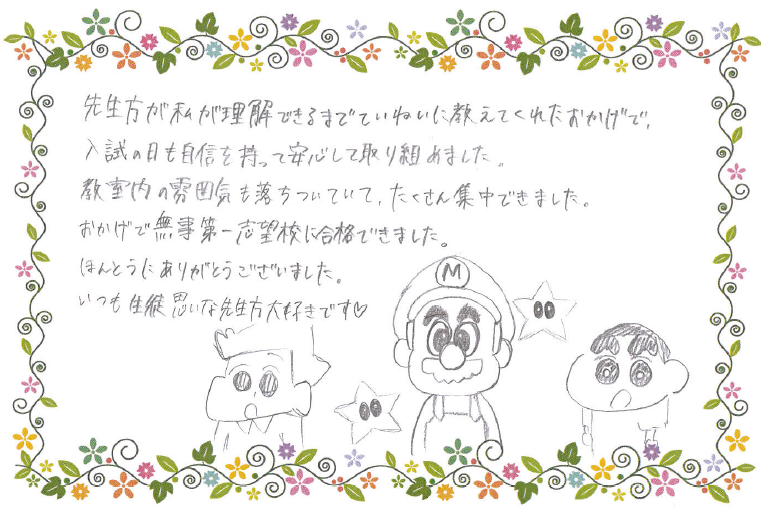 先生方が私が理解できるまでていねいに教えてくれたおかげで、
入試の日も自信を持って安心して取り組めました。
教室内の雰囲気も落ちついていて、たくさん集中できました。
おかげで無事第一志望校に合格できました。
ほんとうにありがとうございました。
いつも生徒思いな先生方大好きです♡
M